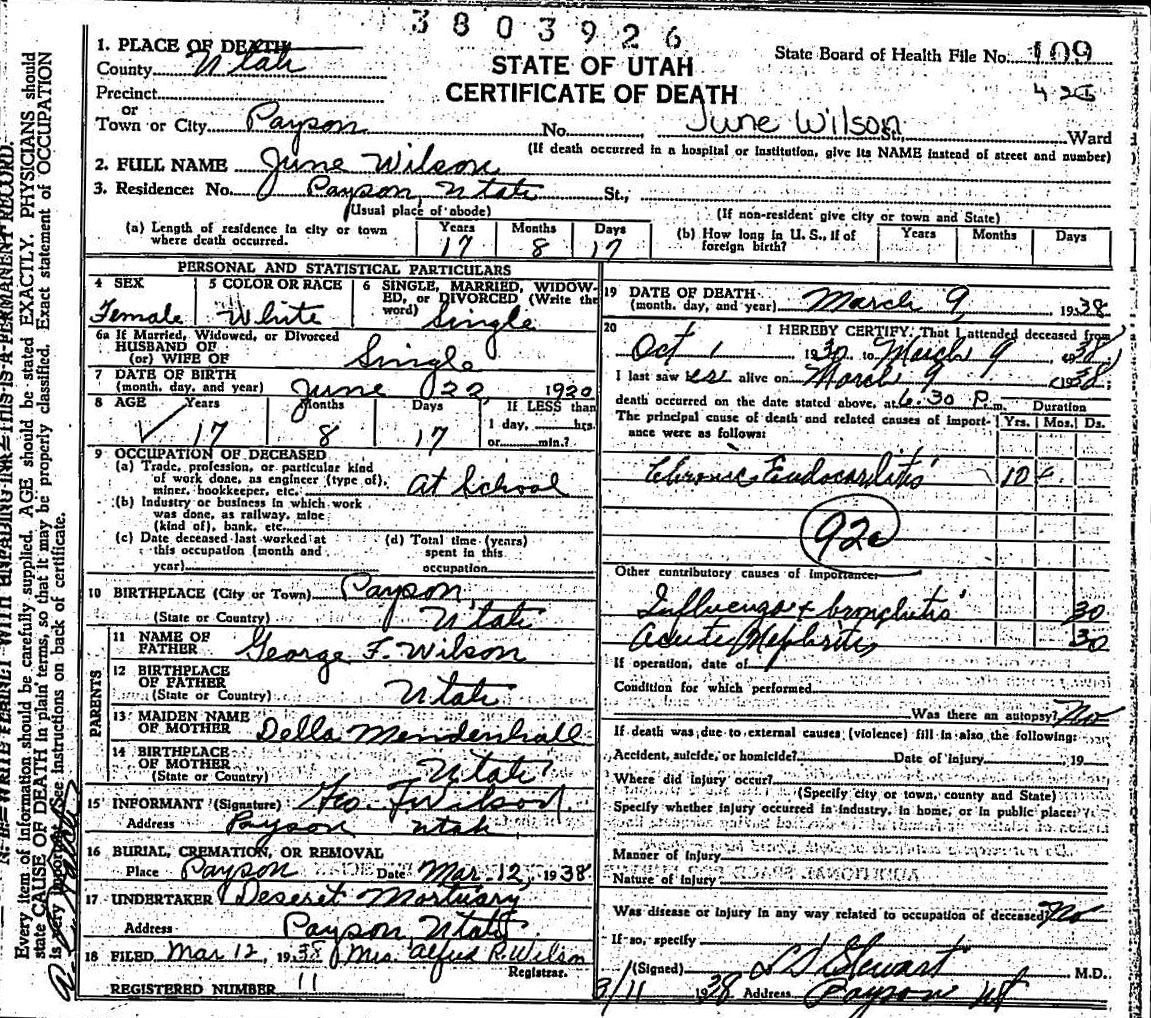 3803926
1. PLACE OF DEATH
County Utah
STATE OF UTAH
State Board of Health File No. 109
Precinct
CERTIFICATE OF DEATH
426
or
Town or City Payson No. June Wilson Ward
(If death occurred in a hospital or institution, give its NAME instead of street and number)
2. FULL NAME June Wilson
3. Residence: No. Payson, Utah St.,
(Usual place of abode) (If non-resident give city or town and State)
(a) Length of residence in city or town where death occurred. Years 17 Months 8 Days 17 (b) How long in U. S., if of foreign birth? Years Months Days
PERSONAL AND STATISTICAL PARTICULARS
4 SEX Female
5 COLOR OR RACE White
6 SINGLE, MARRIED, WIDOWED, or DIVORCED (Write the word) Single
6a If Married, Widowed, or Divorced
HUSBAND OF
(or) WIFE OF Single
7 DATE OF BIRTH
(month, day, and year) June 22, 1920
8 AGE Years 17 Months 8 Days 17 If LESS than
1 day, hrs.
or min.?
9 OCCUPATION OF DECEASED
(a) Trade, profession, or particular kind
of work done, as engineer (type of),
miner, bookkeeper, etc. At School
(b) Industry or business in which work
was done, as railway, mine
(kind of), bank, etc.
(c) Date deceased last worked at
this occupation (month and
year)
(d) Total time (years)
spent in this
occupation
10 BIRTHPLACE (City or Town) Payson
(State or Country) Utah
PARENTS
11 NAME OF
FATHER George F. Wilson
12 BIRTHPLACE
OF FATHER
(State or Country) Utah
13 MAIDEN NAME
OF MOTHER Della Mendenhall
14 BIRTHPLACE
OF MOTHER
(State or Country) Utah
15 INFORMANT (Signature) Geo. F Wilson
Address Payson Utah
16 BURIAL, CREMATION, OR REMOVAL
Place Payson Date Mar. 12, 1938
17 UNDERTAKER Deseret Mortuary
Address Payson Utah
18 FILED Mar 12, 1938 Mrs. Alfred R. Wilson
Registrar.
REGISTERED NUMBER 11
19 DATE OF DEATH
(month, day, and year) March 9, 1938
20 I HEREBY CERTIFY, That I attended deceased from
Oct 1 1930 to March 9, 1938
I last saw er alive on March 9 1938;
death occurred on the date stated above, at 6.30 P.m. Duration
The principal cause of death and related causes of importance were as follows: Yrs. Mos. Ds.
Chronic Endocarditis 10
92c
Other contributory causes of importance:
Influenza + bronchitis 30
Acute Nephritis 30
If operation, date of
Condition for which performed
Was there an autopsy? No
If death was due to external causes (violence) fill in also the following:
Accident, suicide, or homicide? Date of injury 19
Where did injury occur?
(Specify city or town, county and State)
Specify whether injury occurred in industry, in home, or in public place:
Manner of Injury
Nature of Injury
Was disease or injury in any way related to occupation of deceased? No
If so, specify
(Signed) L D Stewart M.D.
3/11 1938 Address Payson Ut
N. B.—WRITE PLAINLY WITH UNFADING INK—THIS IS A PERMANENT RECORD.
Every item of information should be carefully supplied. AGE should be stated EXACTLY. PHYSICIANS should
state CAUSE OF DEATH in plain terms, so that it may be properly classified. Exact statement of OCCUPATION
is very important. See instructions on back of certificate.